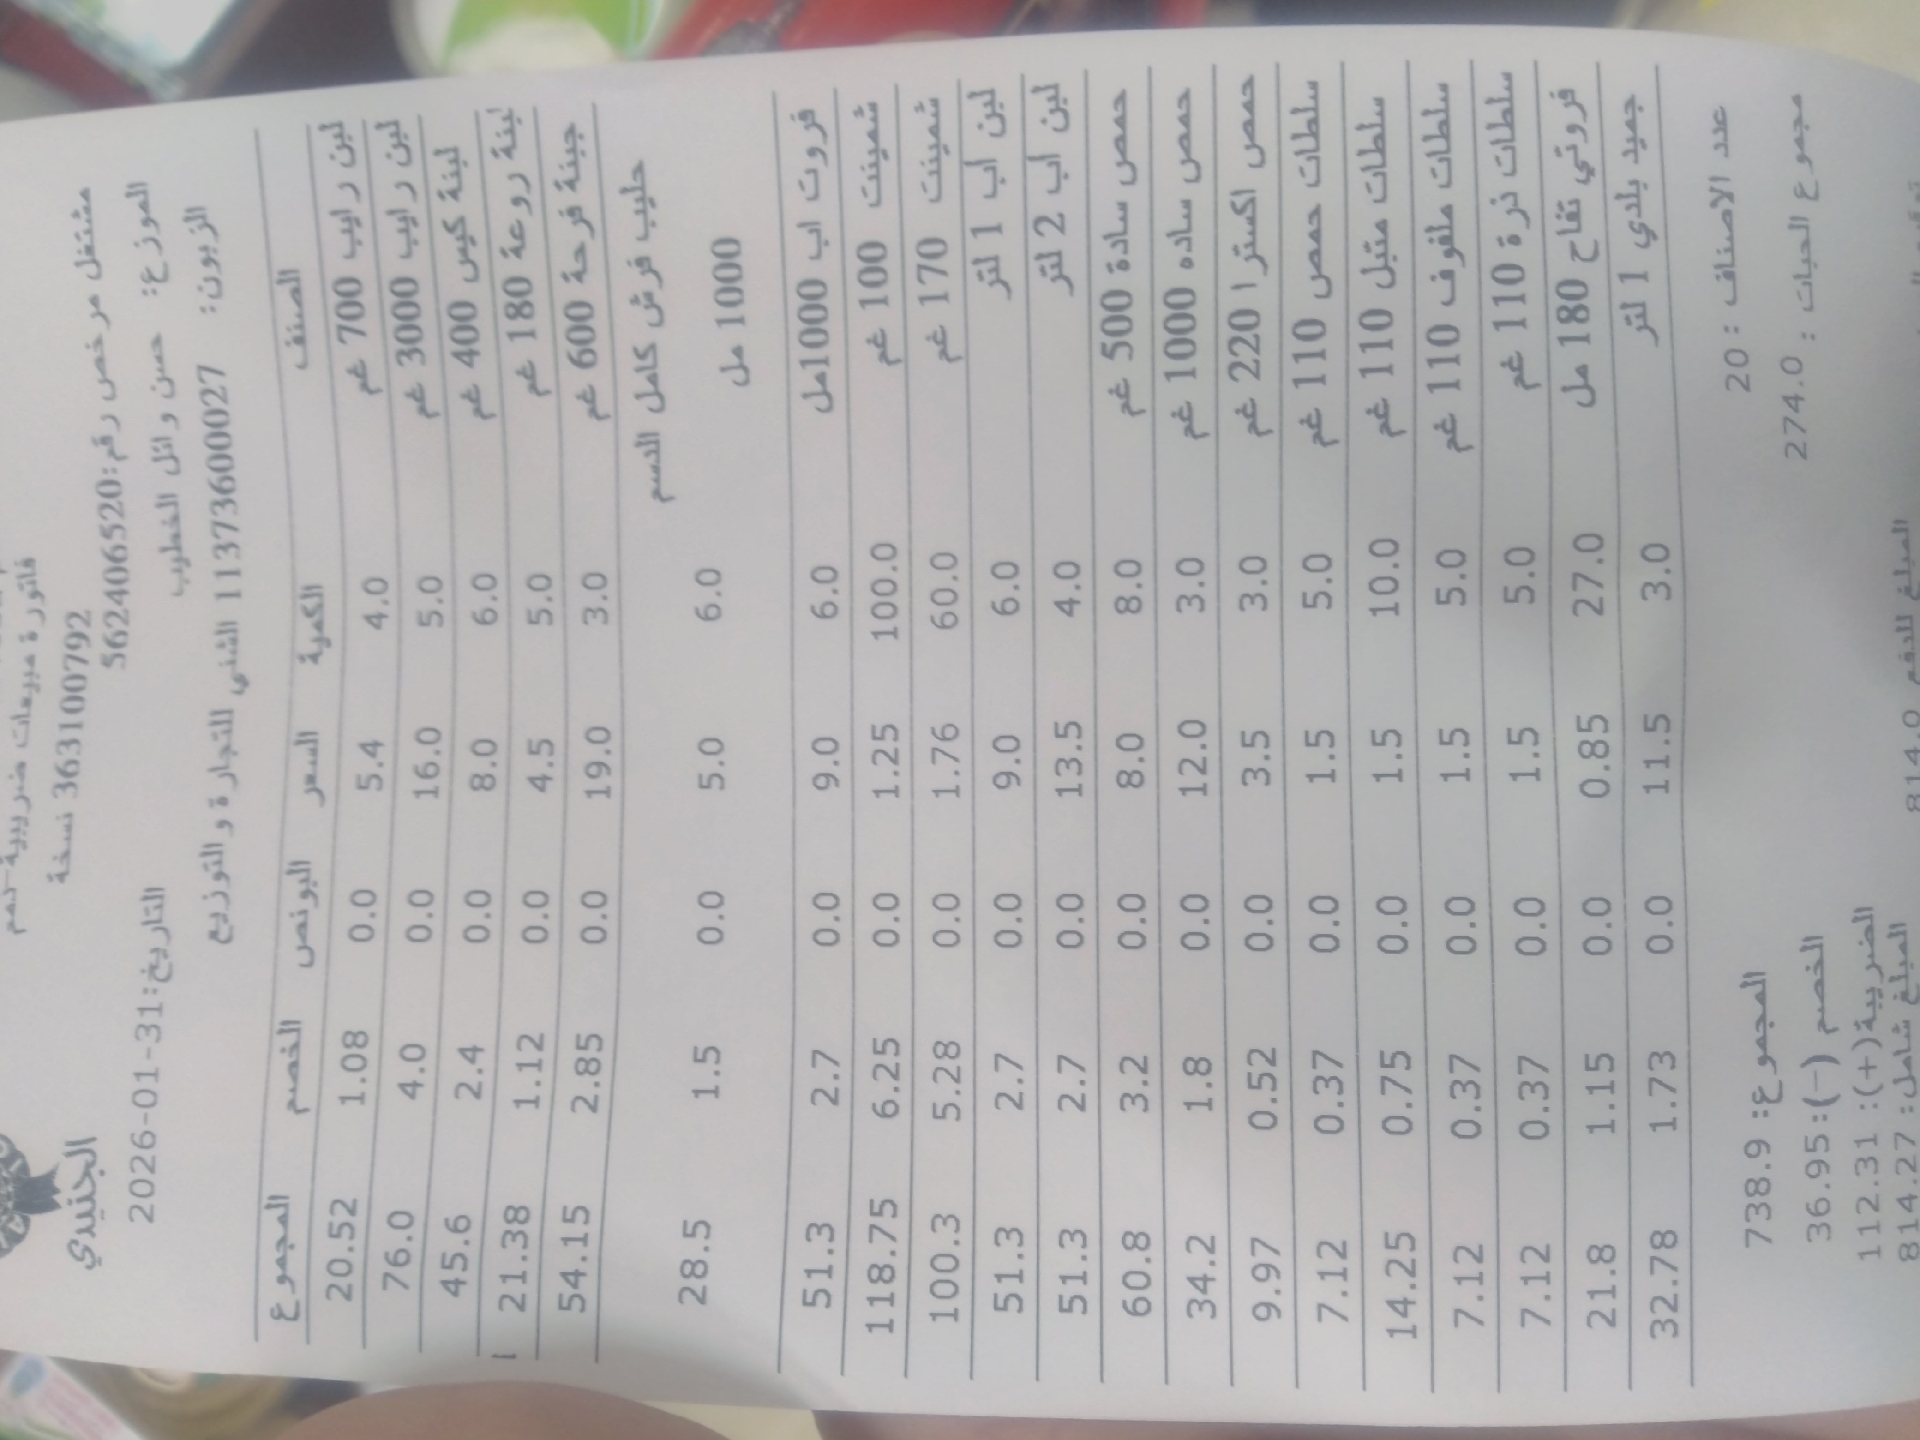 الجنيدي
فاتورة مبيعات ضريبية
3631100792 نسخة
مشتغل مرخص رقم:562406520
التاريخ:2026-01-31 الموزع: حسن وائل الخطيب
الزبون: 1137360027 الشني للتجارة والتوزيع
الصنف الكمية السعر البونص الخصم المجموع
لبن رايب 700 غم 4.0 5.4 0.0 1.08 20.52
لبن رايب 3000 غم 5.0 16.0 0.0 4.0 76.0
لبنة كيس 400 غم 6.0 8.0 0.0 2.4 45.6
لبنة روعة 180 غم 5.0 4.5 0.0 1.12 21.38
جبنة فرحة 600 غم 3.0 19.0 0.0 2.85 54.15
حليب فرش كامل الدسم
1000 مل 6.0 5.0 0.0 1.5 28.5
فروت اب 1000مل 6.0 9.0 0.0 2.7 51.3
شمينت 100 غم 100.0 1.25 0.0 6.25 118.75
شمينت 170 غم 60.0 1.76 0.0 5.28 100.3
لبن اب 1 لتر 6.0 9.0 0.0 2.7 51.3
لبن اب 2 لتر 4.0 13.5 0.0 2.7 51.3
حمص سادة 500 غم 8.0 8.0 0.0 3.2 60.8
حمص ساده 1000 غم 3.0 12.0 0.0 1.8 34.2
حمص اكسترا 220 غم 3.0 3.5 0.0 0.52 9.97
سلطات حمص 110 غم 5.0 1.5 0.0 0.37 7.12
سلطات متبل 110 غم 10.0 1.5 0.0 0.75 14.25
سلطات ملفوف 110 غم 5.0 1.5 0.0 0.37 7.12
سلطات ذرة 110 غم 5.0 1.5 0.0 0.37 7.12
فروتي تفاح 180 مل 27.0 0.85 0.0 1.15 21.8
جميد بلدي 1 لتر 3.0 11.5 0.0 1.73 32.78
عدد الاصناف : 20 المجموع: 738.9
مجموع الحبات : 274.0 الخصم (-): 36.95
الضريبة(+): 112.31
المبلغ شامل: 814.27
المبلغ للدفع 814.0